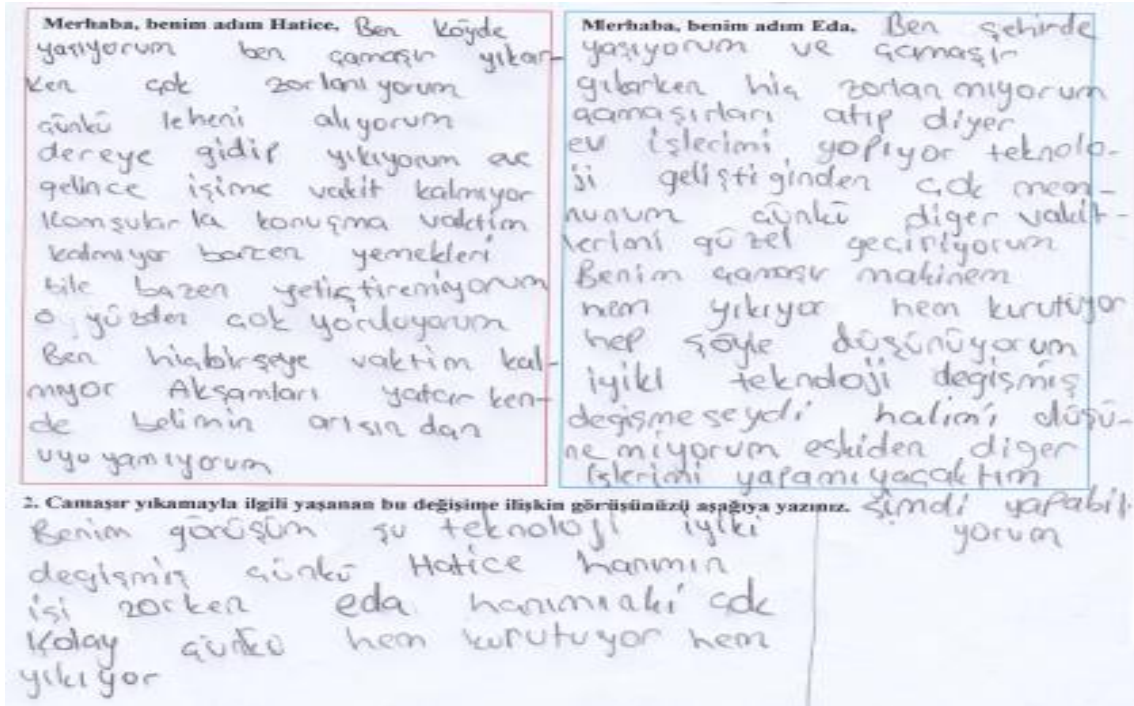 Merhaba, benim adım Hatice. Ben köyde
yaşıyorum ben çamaşır yıkar-
ken çok zorlanıyorum
çünkü leheni alıyorum
dereye gidip yıkıyorum eve
gelince işime vakit kalmıyor
Komşularla konuşma vaktim
kalmıyor bazen yemekleri
bile bazen yeliştiremiyorum
o yüzden çok yoruluyorum
Ben hiçbirşeye vaktim kal-
mıyor Akşamları yatarken-
de belimin arısından
uyuyamıyorum
Merhaba, benim adım Eda. Ben şehirde
yaşıyorum ve çamaşır
yıkarken hiç zorlanmıyorum
çamaşırları atıp diyer
ev işlerimi yapıyor teknolo-
ji geliştiginden çok mem-
nunum çünkü diger vakit-
lerimi güzel geçiriyorum
Benim çamaşır makinem
hem yıkıyor hem kurutuyor
hep şöyle düşünüyorum
iyiki teknoloji degişmiş
degişmeseydi halimi düşü-
nemiyorum eskiden diger
işlerimi yapamıyacaktım
şimdi yapabil-
yorum
2. Camaşır yıkamayla ilgili yaşanan bu değişime ilişkin görüşünüzü aşağıya yazınız.
Benim görüşüm şu teknoloji iyiki
degişmiş çünkü Hatice hanımın
işi zorken eda hanımınki çok
kolay çünkü hem kurutuyor hem
yıkıyor